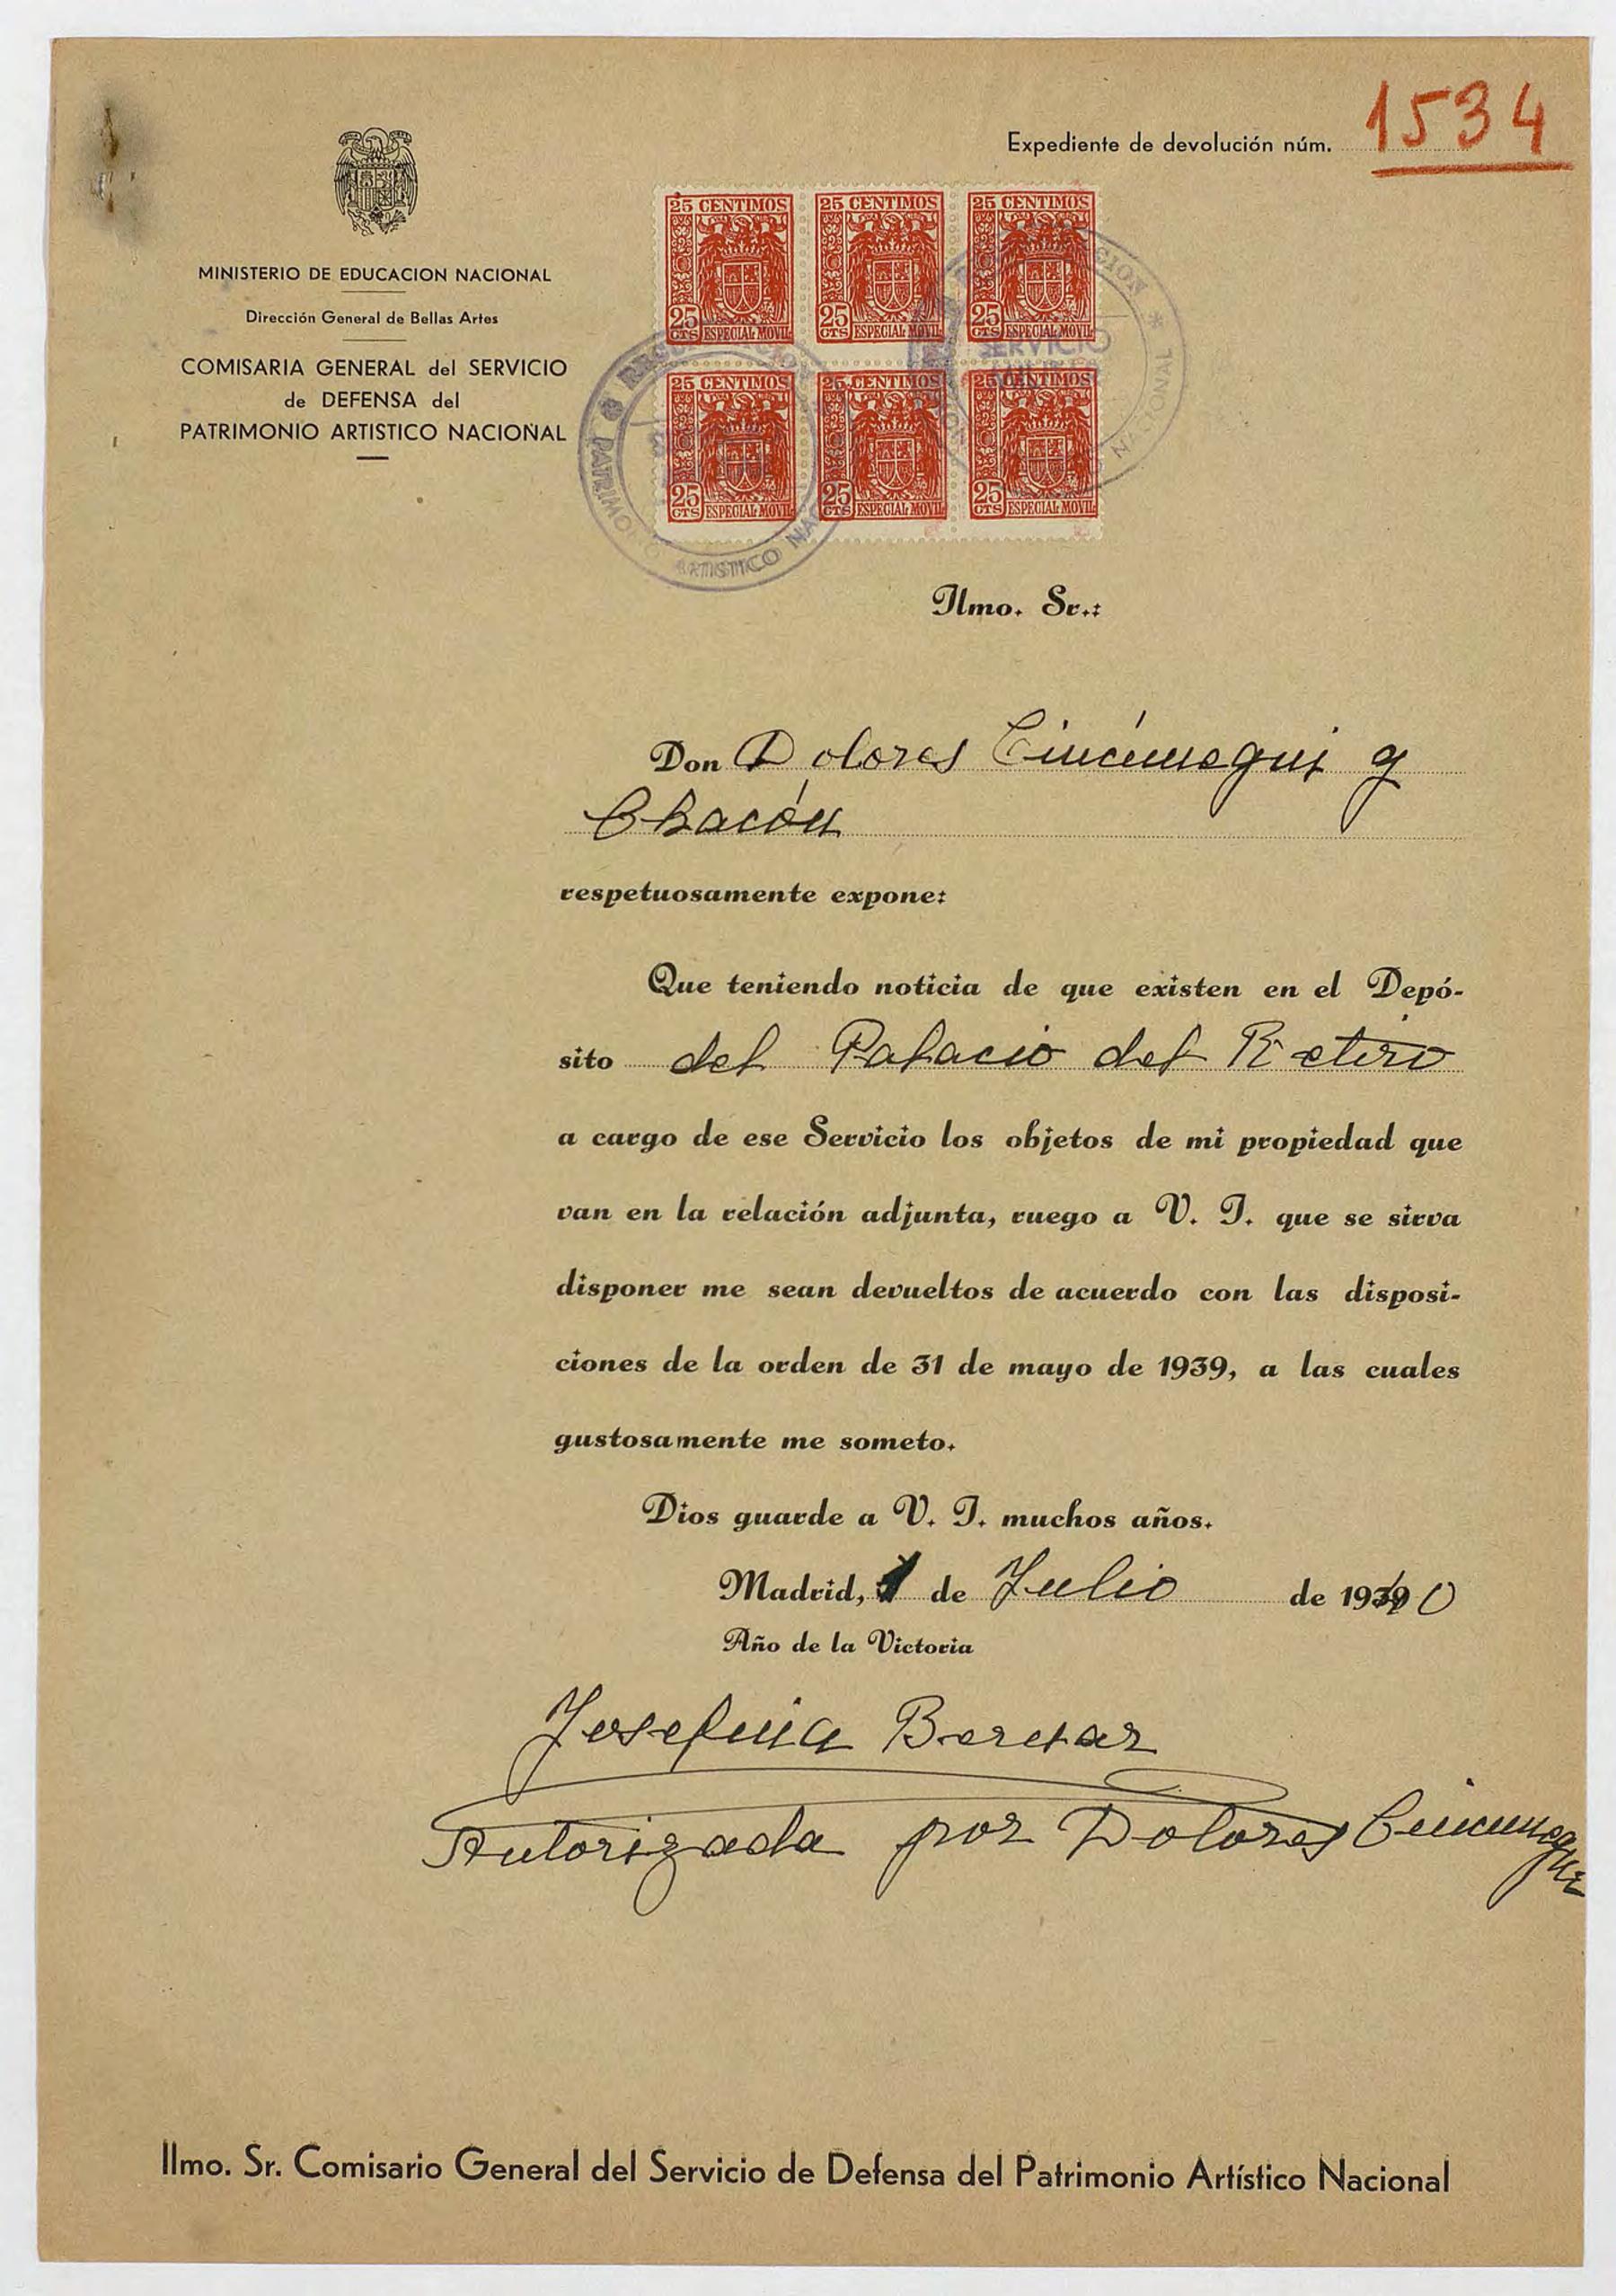 Expediente de devolución núm. 1534
MINISTERIO DE EDUCACION NACIONAL
Dirección General de Bellas Artes
COMISARIA GENERAL del SERVICIO
de DEFENSA del
PATRIMONIO ARTISTICO NACIONAL
25 CENTIMOS 25 CENTIMOS 25 CENTIMOS
25 CTS ESPECIAL MOVIL 25 CTS ESPECIAL MOVIL 25 CTS ESPECIAL MOVIL
25 CENTIMOS 25 CENTIMOS 25 CENTIMOS
25 CTS ESPECIAL MOVIL 25 CTS ESPECIAL MOVIL 25 CTS ESPECIAL MOVIL
SERVICIO
PATRIMONIO ARTISTICO
Ilmo. Sr.:
Don Dolores y
Chacón
respetuosamente expone:
Que teniendo noticia de que existen en el Depó-
sito del Palacio del Retiro
a cargo de ese Servicio los objetos de mi propiedad que
van en la relación adjunta, ruego a V. I. que se sirva
disponer me sean devueltos de acuerdo con las disposi-
ciones de la orden de 31 de mayo de 1939, a las cuales
gustosamente me someto.
Dios guarde a V. I. muchos años.
Madrid, 1 de Julio de 1940
Año de la Victoria
Josefina
Autorizada por Dolores
Ilmo. Sr. Comisario General del Servicio de Defensa del Patrimonio Artístico Nacional